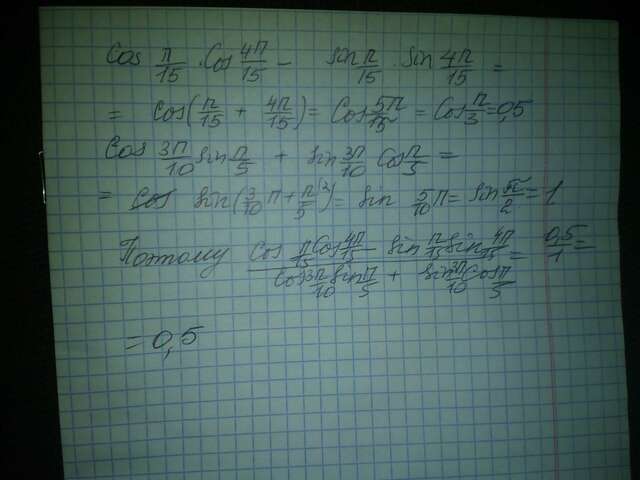 cos π/15 · cos 4π/15 - sin π/15 · sin 4π/15 =
= cos(π/15 + 4π/15) = cos 5π/15 = cos π/3 = 0,5
cos 3π/10 sin π/5 + sin 3π/10 cos π/5 =
= sin(3/10 π + π/5 (2) = sin 5/10 π = sin π/2 = 1
Поэтому cos π/15 cos 4π/15 - sin π/15 sin 4π/15 / cos 3π/10 sin π/5 + sin 3π/10 cos π/5 = 0,5/1 =
= 0,5